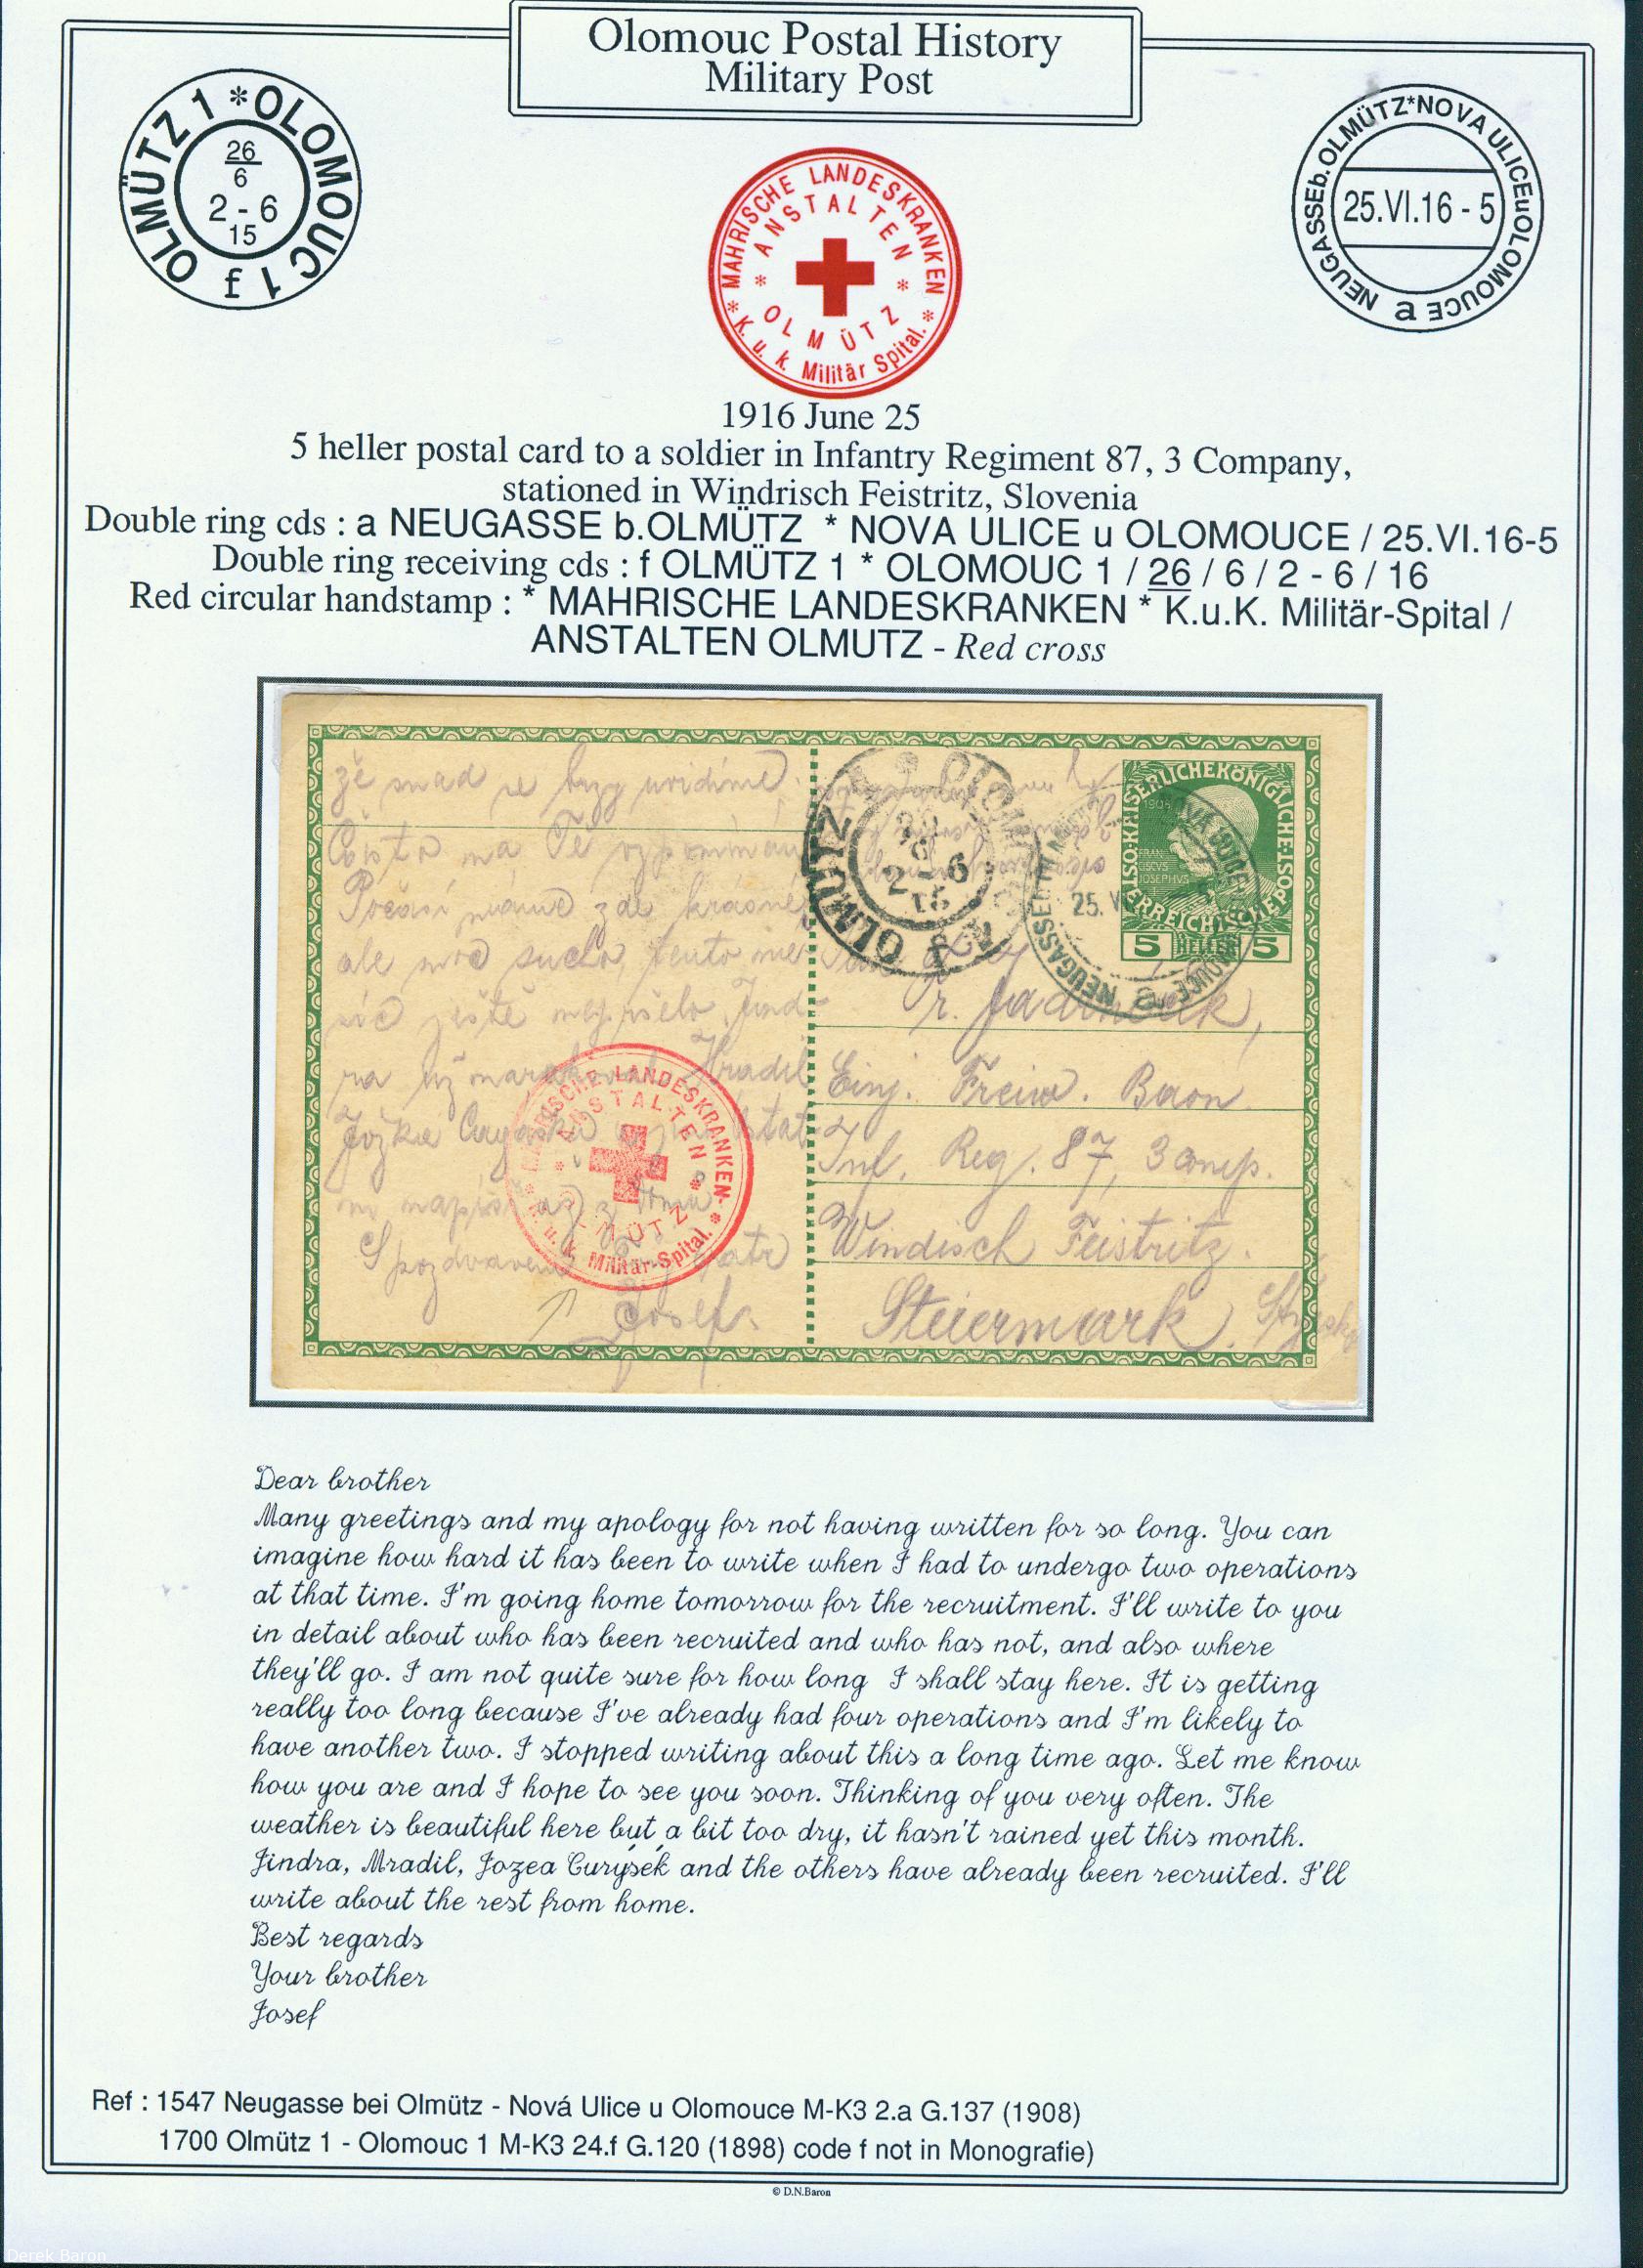 Olomouc Postal History
Military Post
OLMÜTZ 1 * OLOMOUC 1
26
6
2 - 6
15
f
* MAHRISCHE LANDESKRANKEN *
* ANSTALTEN *
OLMÜTZ
K. u. k. Militär Spital.
NEUGASSEb.OLMÜTZ*NOVA ULICEuOLOMOUCE
25.VI.16 - 5
a
1916 June 25
5 heller postal card to a soldier in Infantry Regiment 87, 3 Company,
stationed in Windrisch Feistritz, Slovenia
Double ring cds : a NEUGASSE b.OLMÜTZ * NOVA ULICE u OLOMOUCE / 25.VI.16-5
Double ring receiving cds : f OLMÜTZ 1 * OLOMOUC 1 / 26 / 6 / 2 - 6 / 16
Red circular handstamp : * MAHRISCHE LANDESKRANKEN * K.u.K. Militär-Spital /
ANSTALTEN OLMUTZ - Red cross
že snad se brzy uvidíme.
Často na Tě vzpomínám
Počasí máme zde krásné
ale moc sucho, tento mě
síc ještě nepršelo. Jind
ra už Hradil
Jožka
z domu
S pozdravem
Josef.
OLMÜTZ
2 - 6
15
KAISERLICHE KÖNIGLICHE ÖSTERREICHISCHE POST
1908
5 HELLER 5
NEUGASSE
25. V
a
Einj. Freiw. Baon.
Inf. Reg. 87, 3 comp.
Windisch Feistritz.
Steiermark.
LANDESKRANKEN-
ANSTALTEN
OLMÜTZ
u. k. Militär-Spital.
Dear brother
Many greetings and my apology for not having written for so long. You can
imagine how hard it has been to write when I had to undergo two operations
at that time. I'm going home tomorrow for the recruitment. I'll write to you
in detail about who has been recruited and who has not, and also where
they'll go. I am not quite sure for how long I shall stay here. It is getting
really too long because I've already had four operations and I'm likely to
have another two. I stopped writing about this a long time ago. Let me know
how you are and I hope to see you soon. Thinking of you very often. The
weather is beautiful here but a bit too dry, it hasn't rained yet this month.
Jindra, Mradil, Jozea Curýsek and the others have already been recruited. I'll
write about the rest from home.
Best regards
Your brother
Josef
Ref : 1547 Neugasse bei Olmütz - Nová Ulice u Olomouce M-K3 2.a G.137 (1908)
1700 Olmütz 1 - Olomouc 1 M-K3 24.f G.120 (1898) code f not in Monografie)
© D.N.Baron
Derek Baron